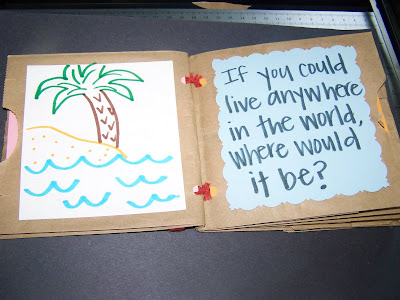 If you could
live anywhere
in the world,
where would
it be?